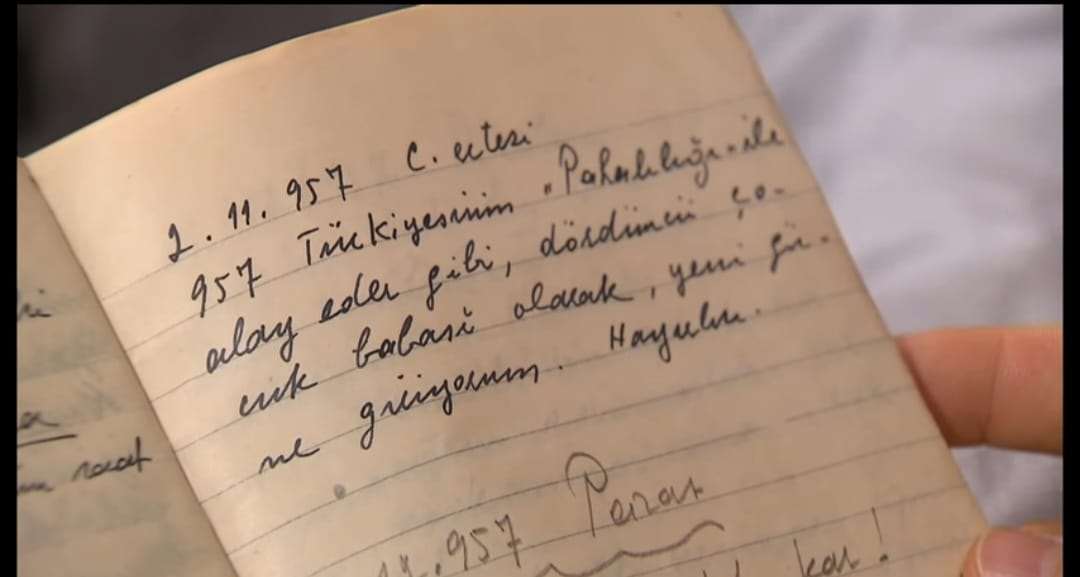 2.11.957 C. ertesi
957 Türkiyesinin "Pahalılığı" ile
alay eder gibi, dördüncü ço-
cuk babası olarak, yeni gü-
ne giriyorum. Hayırlısı.
957 Pazar
kar!